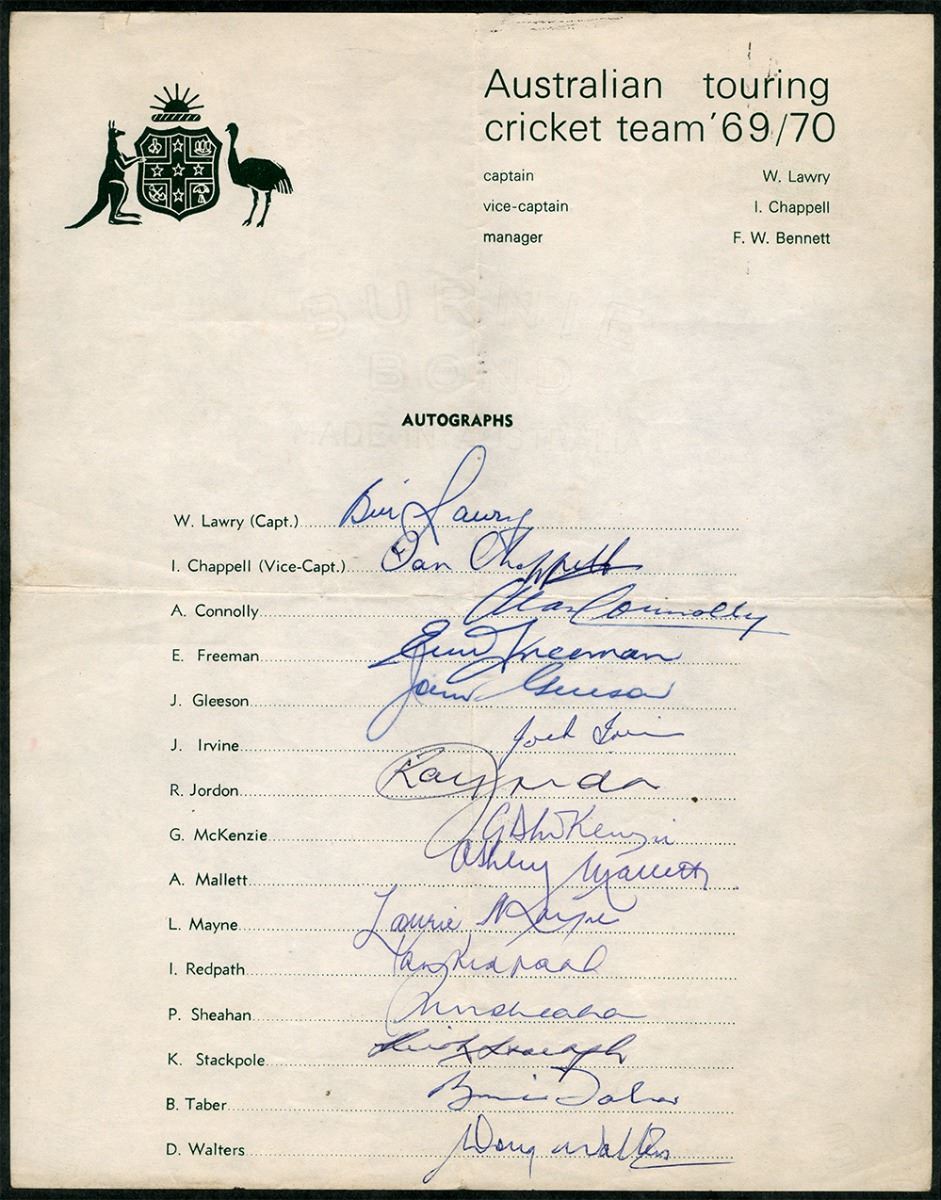 Australian touring
cricket team '69/70
captain W. Lawry
vice-captain I. Chappell
manager F. W. Bennett
BURNIE
BOND
MADE IN AUSTRALIA
AUTOGRAPHS
W. Lawry (Capt.) Bill Lawry
I. Chappell (Vice-Capt.) Ian Chappell
A. Connolly Alan Connolly
E. Freeman Eric Freeman
J. Gleeson John Gleeson
J. Irvine Jock Irvine
R. Jordon Ray Jordon
G. McKenzie G D McKenzie
A. Mallett Ashley Mallett
L. Mayne Laurie Mayne
I. Redpath Ian Redpath
P. Sheahan Sheahan
K. Stackpole Keith Stackpole
B. Taber Brian Taber
D. Walters Doug Walters